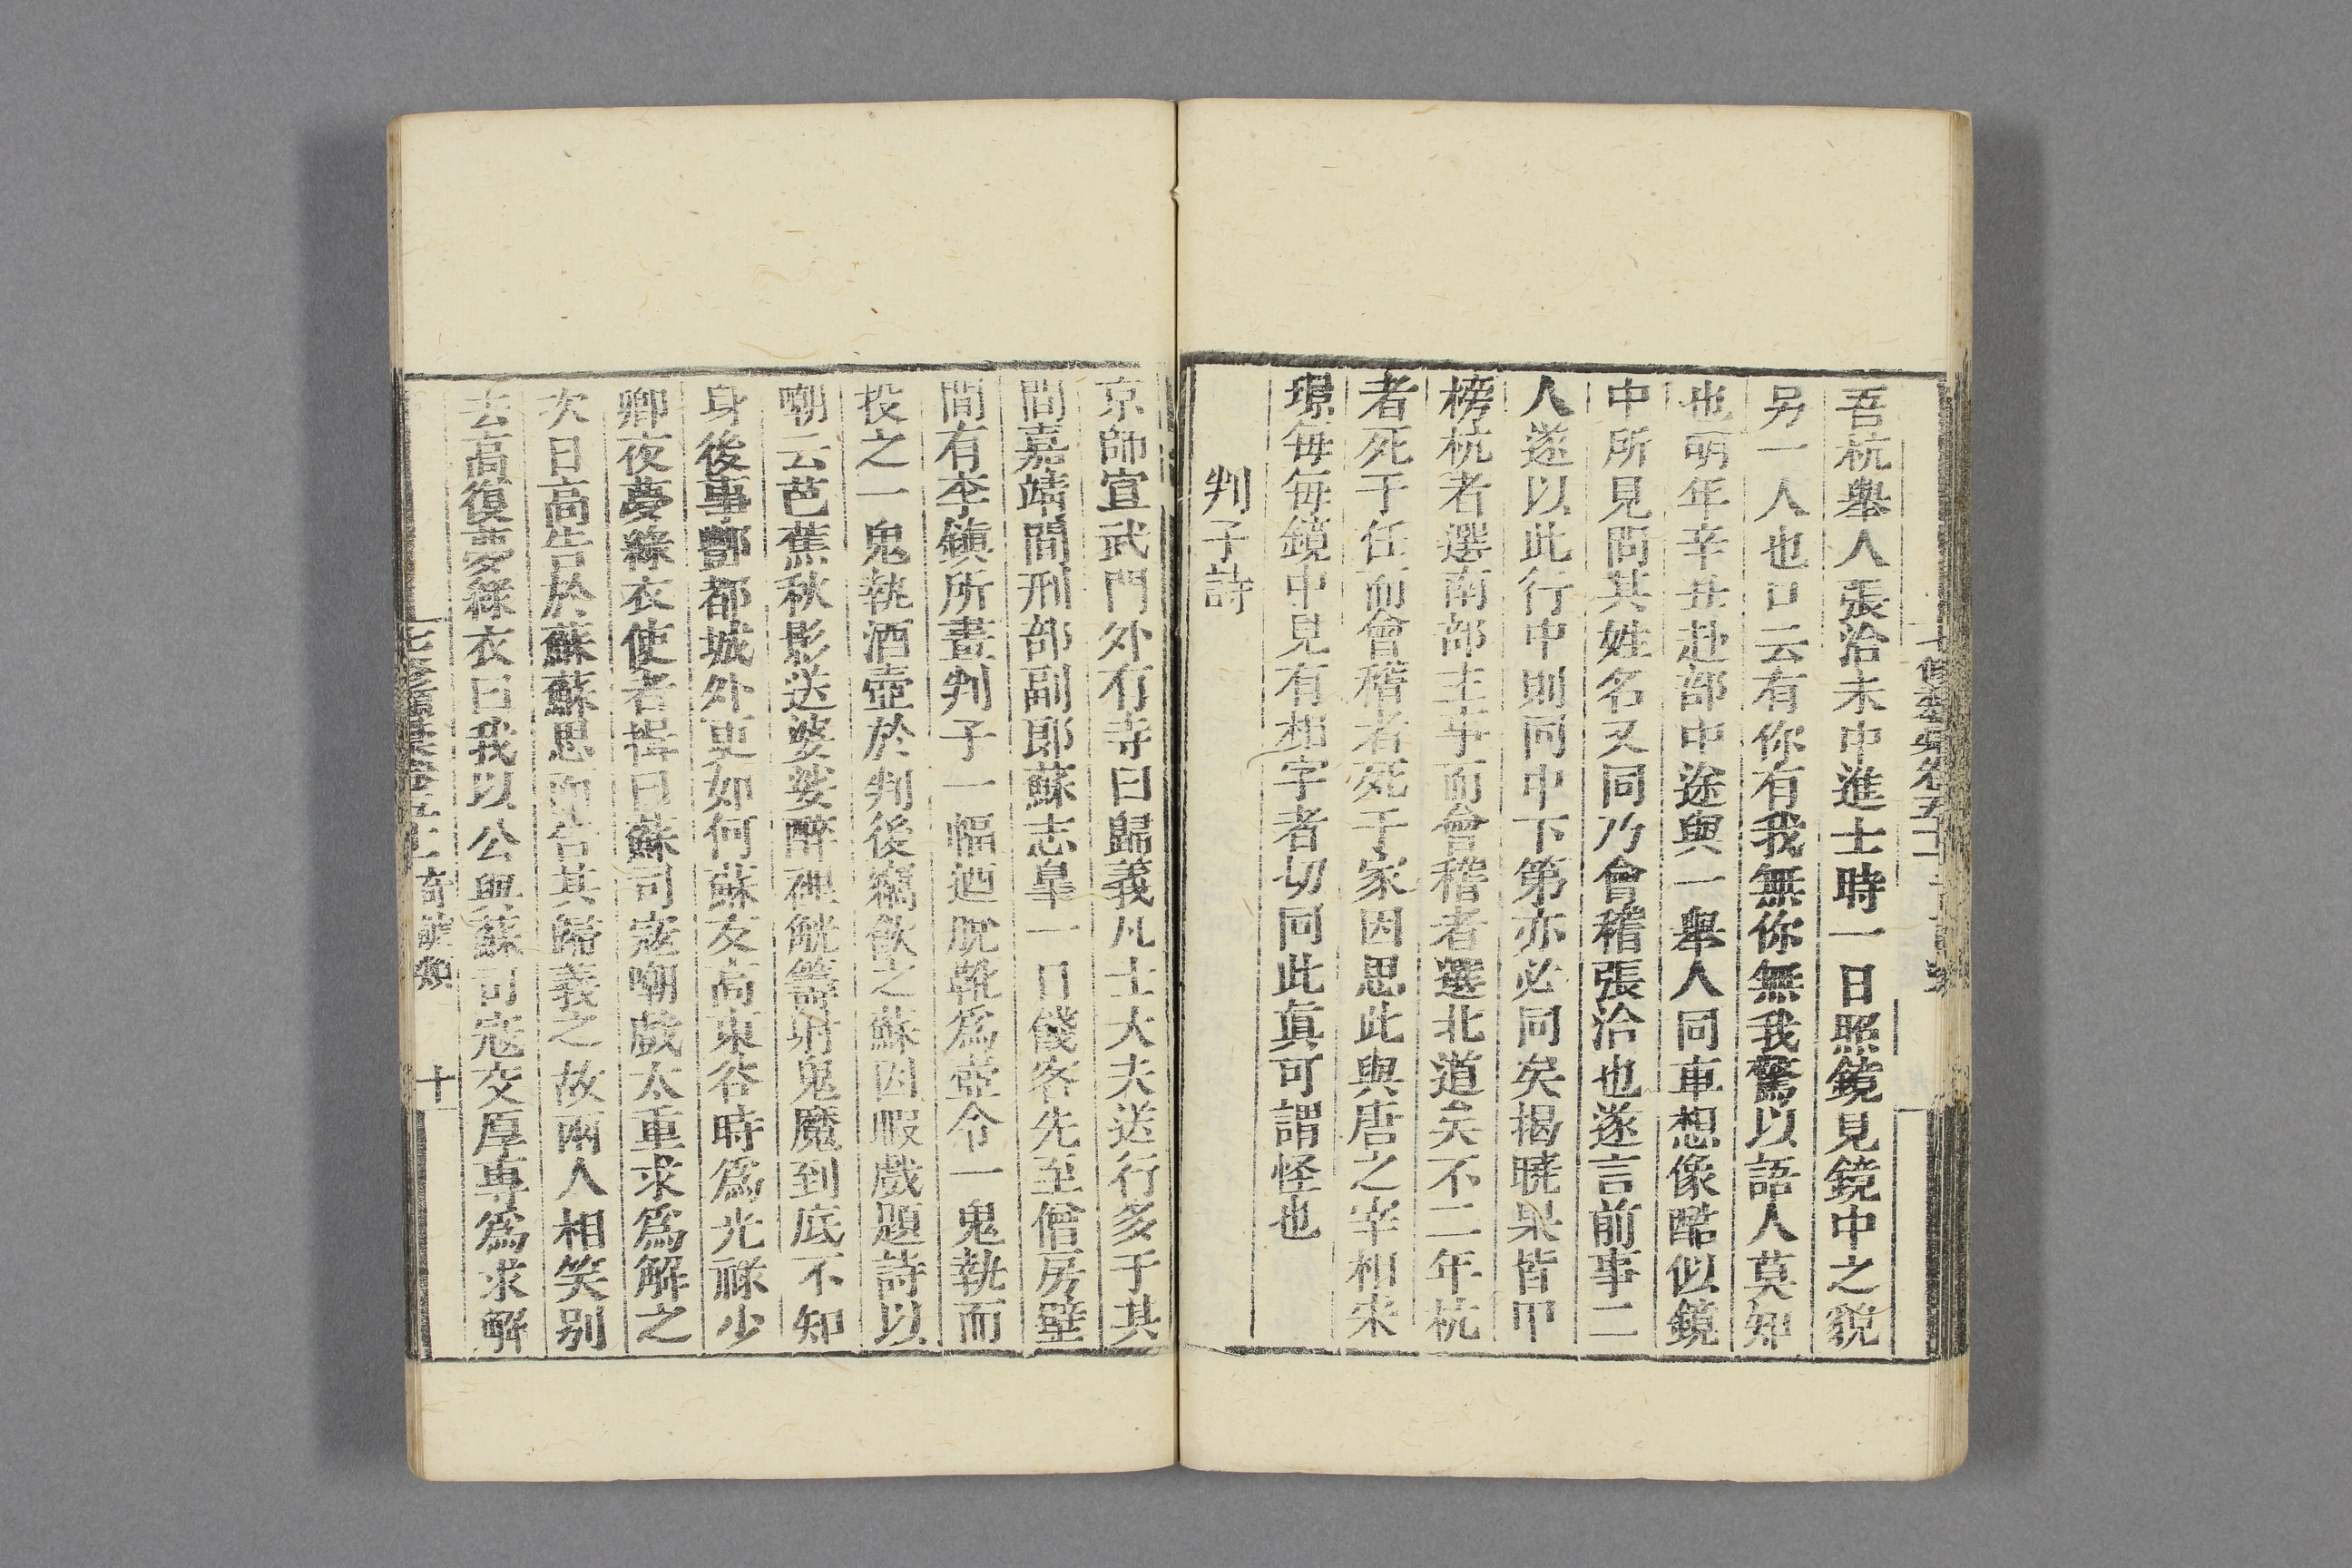 吾杭舉人張洽未中進士時一日照鏡見鏡中之貌
另一人也口云有你有我無你無我驚以語人莫知
也明年辛丑赴部中途與一舉人同車想像酷似鏡
中所見問其姓名又同乃會稽張洽也遂言前事二
人遂以此行中則同中下第亦必同矣揭曉果皆甲
榜杭者選南部主事而會稽者選北道矣不二年杭
者死于任而會稽者死于家因思此與唐之宰相宋
璟每每鏡中見有相字者切同此眞可謂怪也
判子詩
京師宣武門外有寺曰歸義凡士大夫送行多于其
間嘉靖間刑部副郎蘇志皐一日餞客先至僧房壁
間有李鎮所畫判子一幅迺脫靴爲壺令一鬼執而
投之一鬼執酒壺於判後竊飲之蘇因暇戲題詩以
嘲云芭蕉秋影送婆娑醉裡觥籌射鬼魔到底不知
身後事酆都城外更如何蘇友高東谷時爲光祿少
卿夜夢綠衣使者揖曰蘇司寇嘲戲太重求爲解之
次日高告於蘇蘇思卽告其歸義之故兩人相笑别
去高復夢綠衣曰我以公與蘇司寇交厚專爲求解
七修續藁卷五上 奇謔類 十